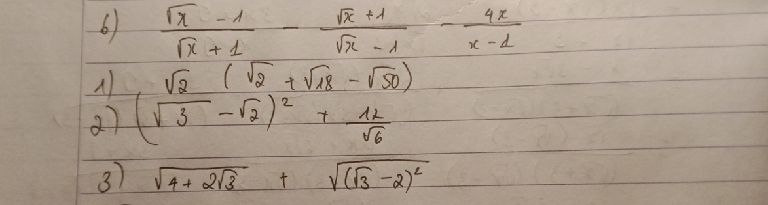 6) (√x - 1)/(√x + 1) - (√x + 1)/(√x - 1) - 4x/(x - 1)
1) √2 (√2 + √18 - √50)
2) (√3 - √2)² + 12/√6
3) √(4 + 2√3) + √((√3 - 2)²)